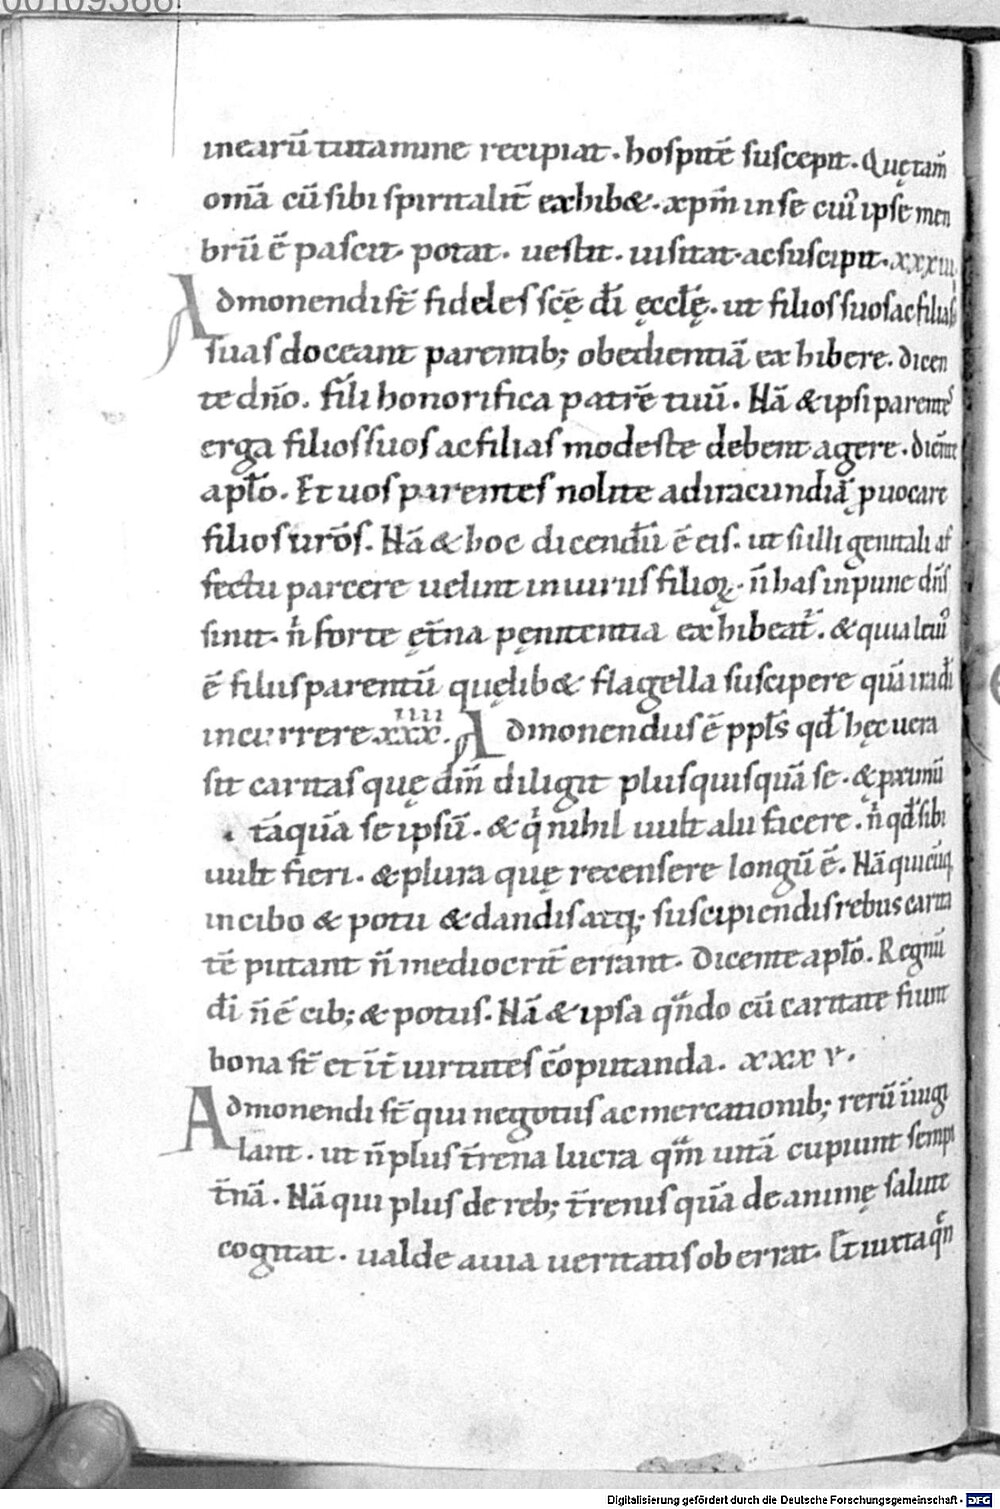 00109386
inearū tutamine recipiat. hospitē suscepit. Quę tam̄
om̄a cū sibi spiritalit̄ exhib&. xp̄m in se cuiꝰ ipsę men
brū ē pascit. potat. uestit. uisitat. ac suscipit. xxxiii.
Admonendi st̄ fideles scę̄ dī ęccłę. ut filios suos ac filias
suas doceant parentib; obedientiā exhibere. dicen
te dn̄o. fili honorifica patrē tuū. Nā & ipsi parentes
erga filios suos ac filias modeste debent agere. dicente
apłō. Et uos parentes nolite ad iracundiā ꝓuocare
filios ur̄os. Nā & hoc dicendū ē eis. ut si illi genitali af
fectu parcere uelint iniuriis filioꝝ. n̄ has inpune dn̄s
sinit. n̄ forte ęt̄na pęnitentia exhibeat̄. & quia leuiꝰ
ē filiis parentū quęlib& flagella suscipere quā irā dī
incurrere. xxx.iiii Admonendus ē ppłs qd̄ hęc uera
sit caritas quę dm̄ diligit plus quis quā se. & ꝓximū
tāquā se ipsū. & q̄ nihil uult alii facere. n̄ qd̄ sibi
uult fieri. & plura quę recensere longū ē. Nā qui cūq;
in cibo & potu & dandis atq; suscipiendis rebus carita
tē putant n̄ mediocrit̄ errant. Dicente apłō. Regnū
dī n̄ ē cib; & potus. Nā & ipsa qn̄do cū caritate fiunt
bona st̄ et īt̄ uirtutes cōputanda. xxxv.
Admonendi st̄ qui negotiis ac mercationib; rerū īuigi
lant. ut n̄ plus t̄rena lucra qm̄ uitā cupiunt sempi
t̄nā. Nā qui plus de reb; t̄renis quā de animę salute
cogitat. ualde a uia ueritatis oberrat. Et iuxta qn̄
Digitalisierung gefördert durch die Deutsche Forschungsgemeinschaft - DFG